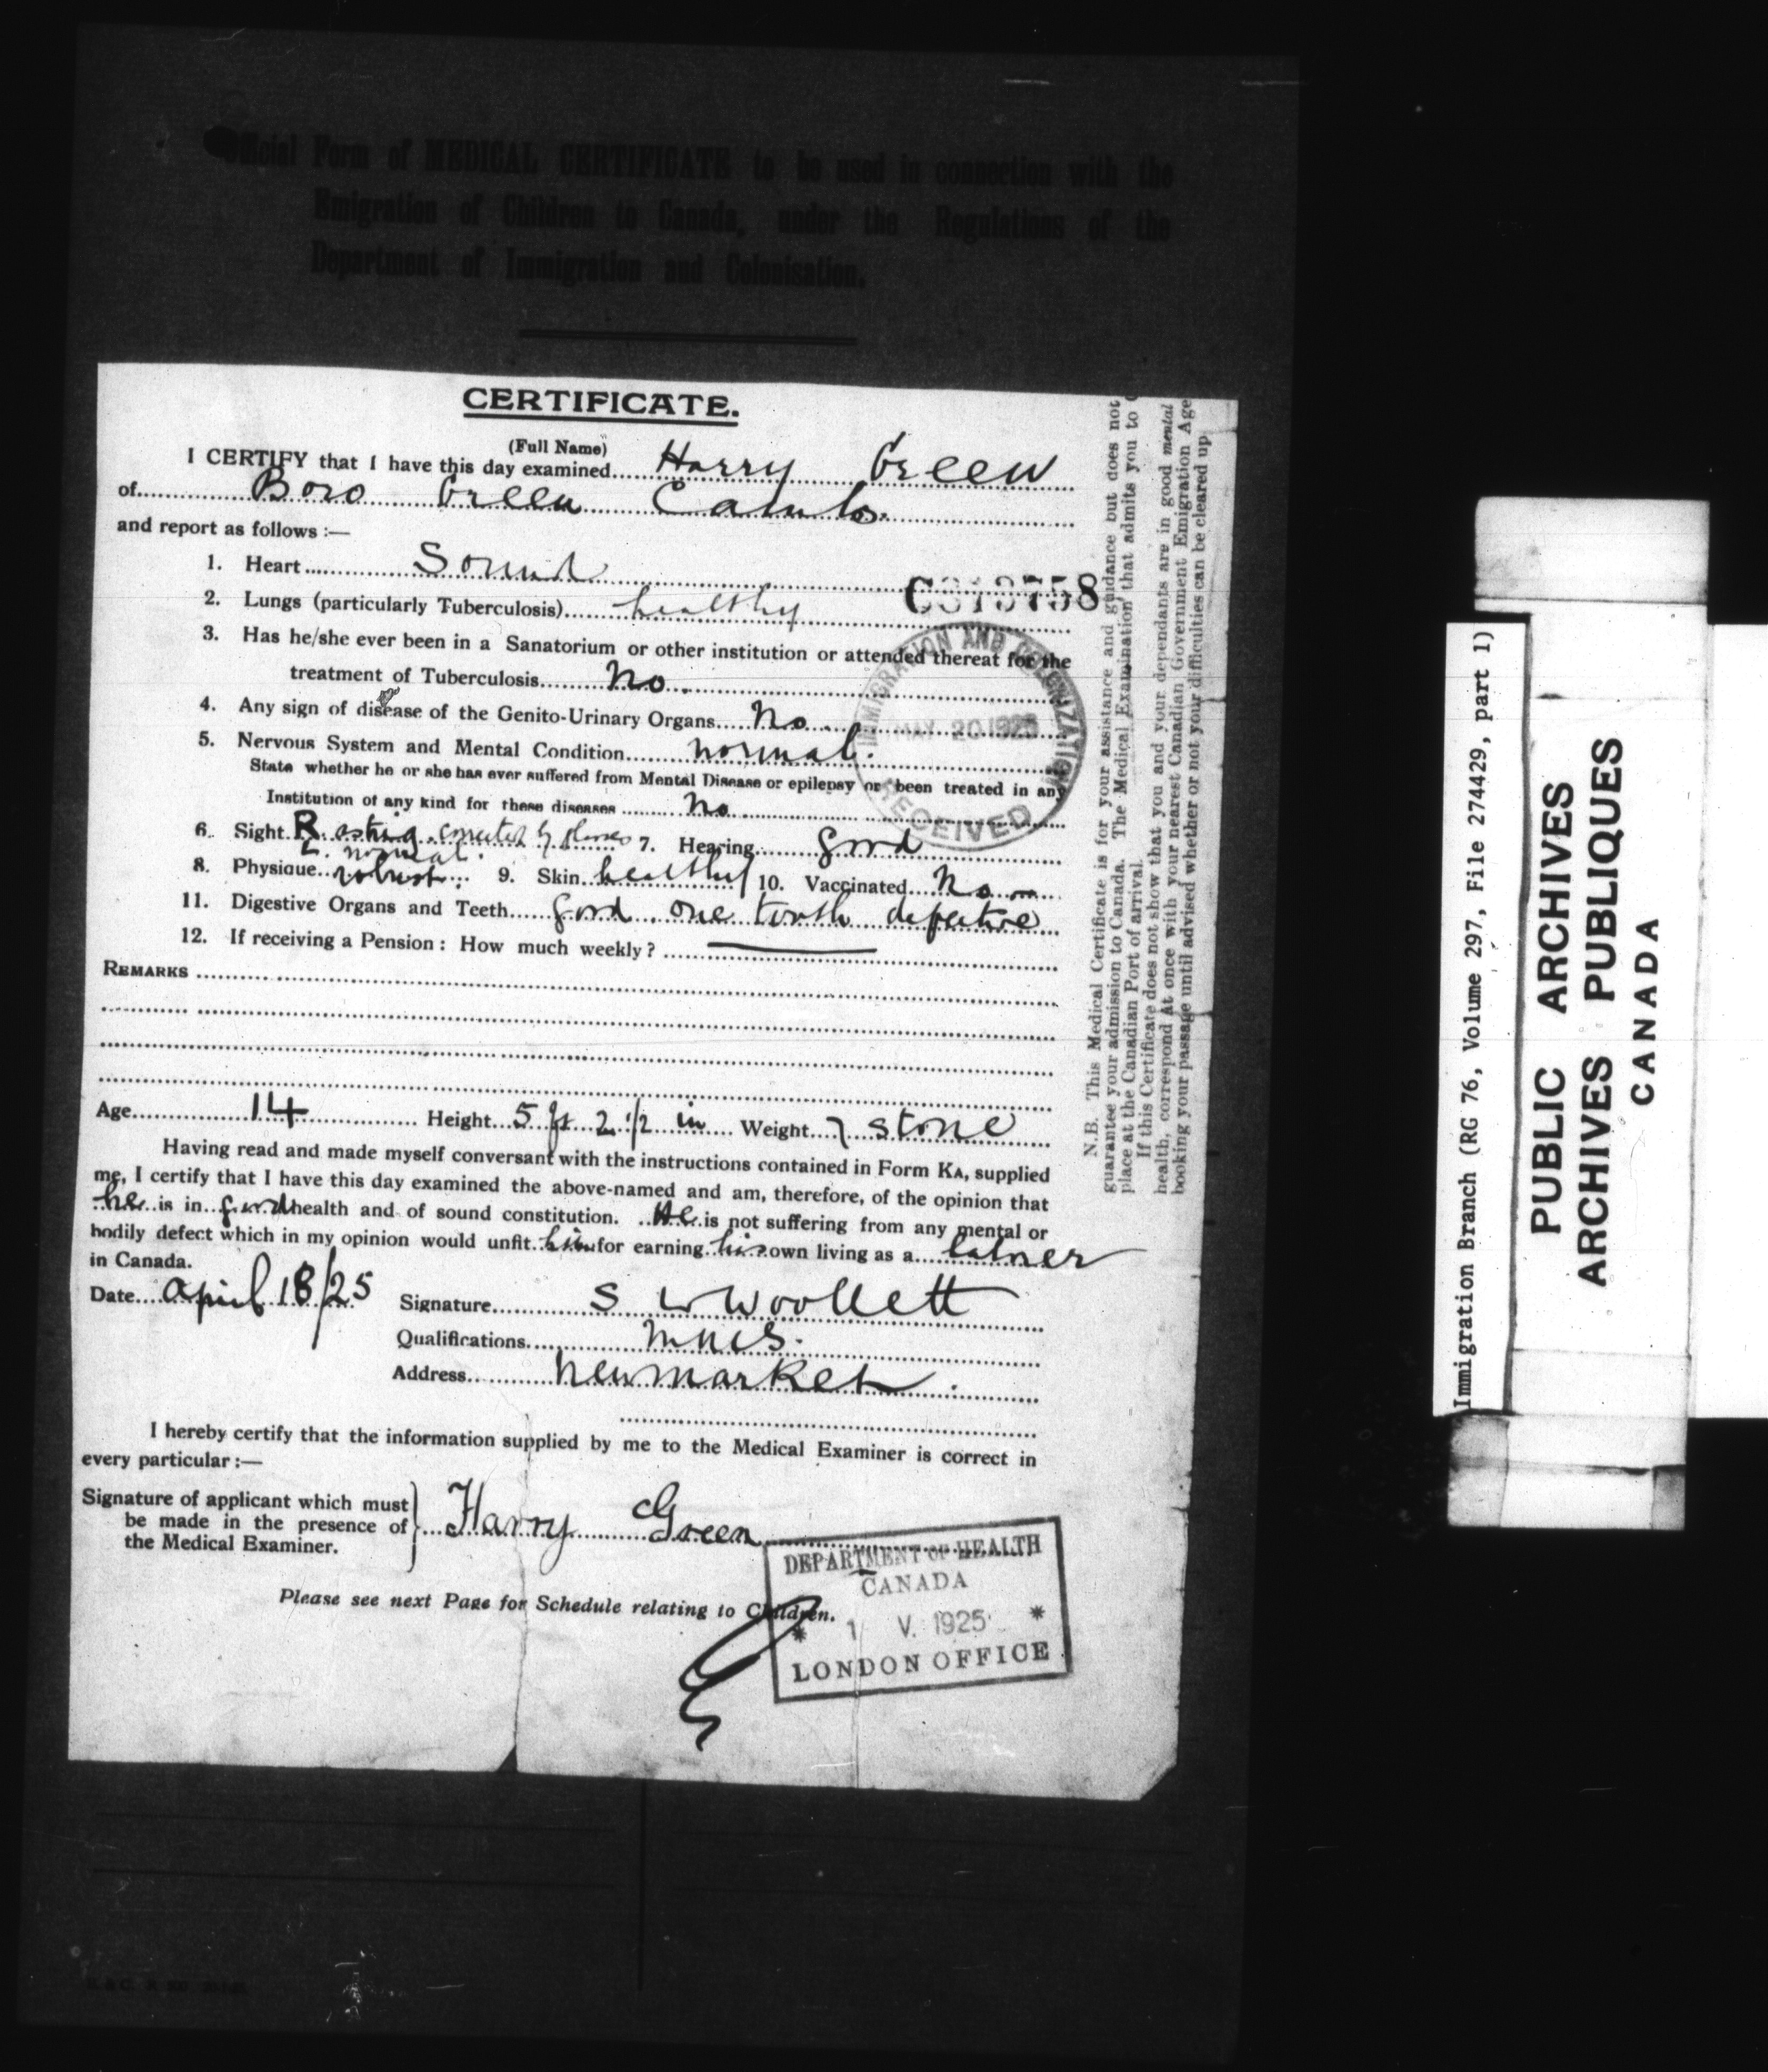 Official Form of MEDICAL CERTIFICATE to be used in connection with the
Emigration of Children to Canada, under the Regulations of the
Department of Immigration and Colonisation.
CERTIFICATE.
(Full Name)
I CERTIFY that I have this day examined Harry Green
of Boro Green Cambs.
and report as follows :—
1. Heart Sound
C313758
2. Lungs (particularly Tuberculosis) healthy
3. Has he/she ever been in a Sanatorium or other institution or attended thereat for the
treatment of Tuberculosis No.
4. Any sign of disease of the Genito-Urinary Organs No.
5. Nervous System and Mental Condition normal.
State whether he or she has ever suffered from Mental Disease or epilepsy or been treated in any
Institution of any kind for these diseases No
6. Sight R. astig. corrected by glasses 7. Hearing good
L. normal.
8. Physique robust. 9. Skin healthy 10. Vaccinated No
11. Digestive Organs and Teeth good one tooth defective
12. If receiving a Pension : How much weekly ?
REMARKS
IMMIGRATION AND COLONIZATION
MAY 20 1925
RECEIVED
Age 14 Height 5 ft 2 1/2 in Weight 7 stone
Having read and made myself conversant with the instructions contained in Form KA, supplied
me, I certify that I have this day examined the above-named and am, therefore, of the opinion that
he is in good health and of sound constitution. He is not suffering from any mental or
bodily defect which in my opinion would unfit him for earning his own living as a labourer
in Canada.
Date April 18/25 Signature S W Woollett
Qualifications MRCS.
Address Newmarket.
I hereby certify that the information supplied by me to the Medical Examiner is correct in
every particular :—
Signature of applicant which must
be made in the presence of
the Medical Examiner.
Harry Green
Please see next Page for Schedule relating to Children.
DEPARTMENT OF HEALTH
CANADA
* 1 V. 1925 *
LONDON OFFICE
N.B. This Medical Certificate is for your assistance and guidance but does not
guarantee your admission to Canada. The Medical Examination that admits you to C
place at the Canadian Port of arrival.
If this Certificate does not show that you and your dependants are in good mental
health, correspond at once with your nearest Canadian Government Emigration Age
booking your passage until advised whether or not your difficulties can be cleared up.
Immigration Branch (RG 76, Volume 297, File 274429, part 1)
PUBLIC ARCHIVES
ARCHIVES PUBLIQUES
CANADA